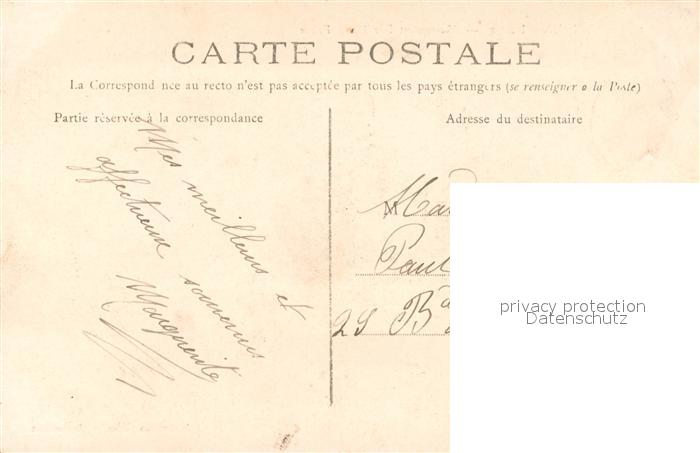 CARTE POSTALE
La Correspond nce au recto n'est pas acceptée par tous les pays étrangers (se renseigner a la Poste)
Partie réservée à la correspondance
Adresse du destinataire
Mes meilleurs et
affectueux souvenirs
Marguerite
M
Paul
29 B
privacy protection
Datenschutz